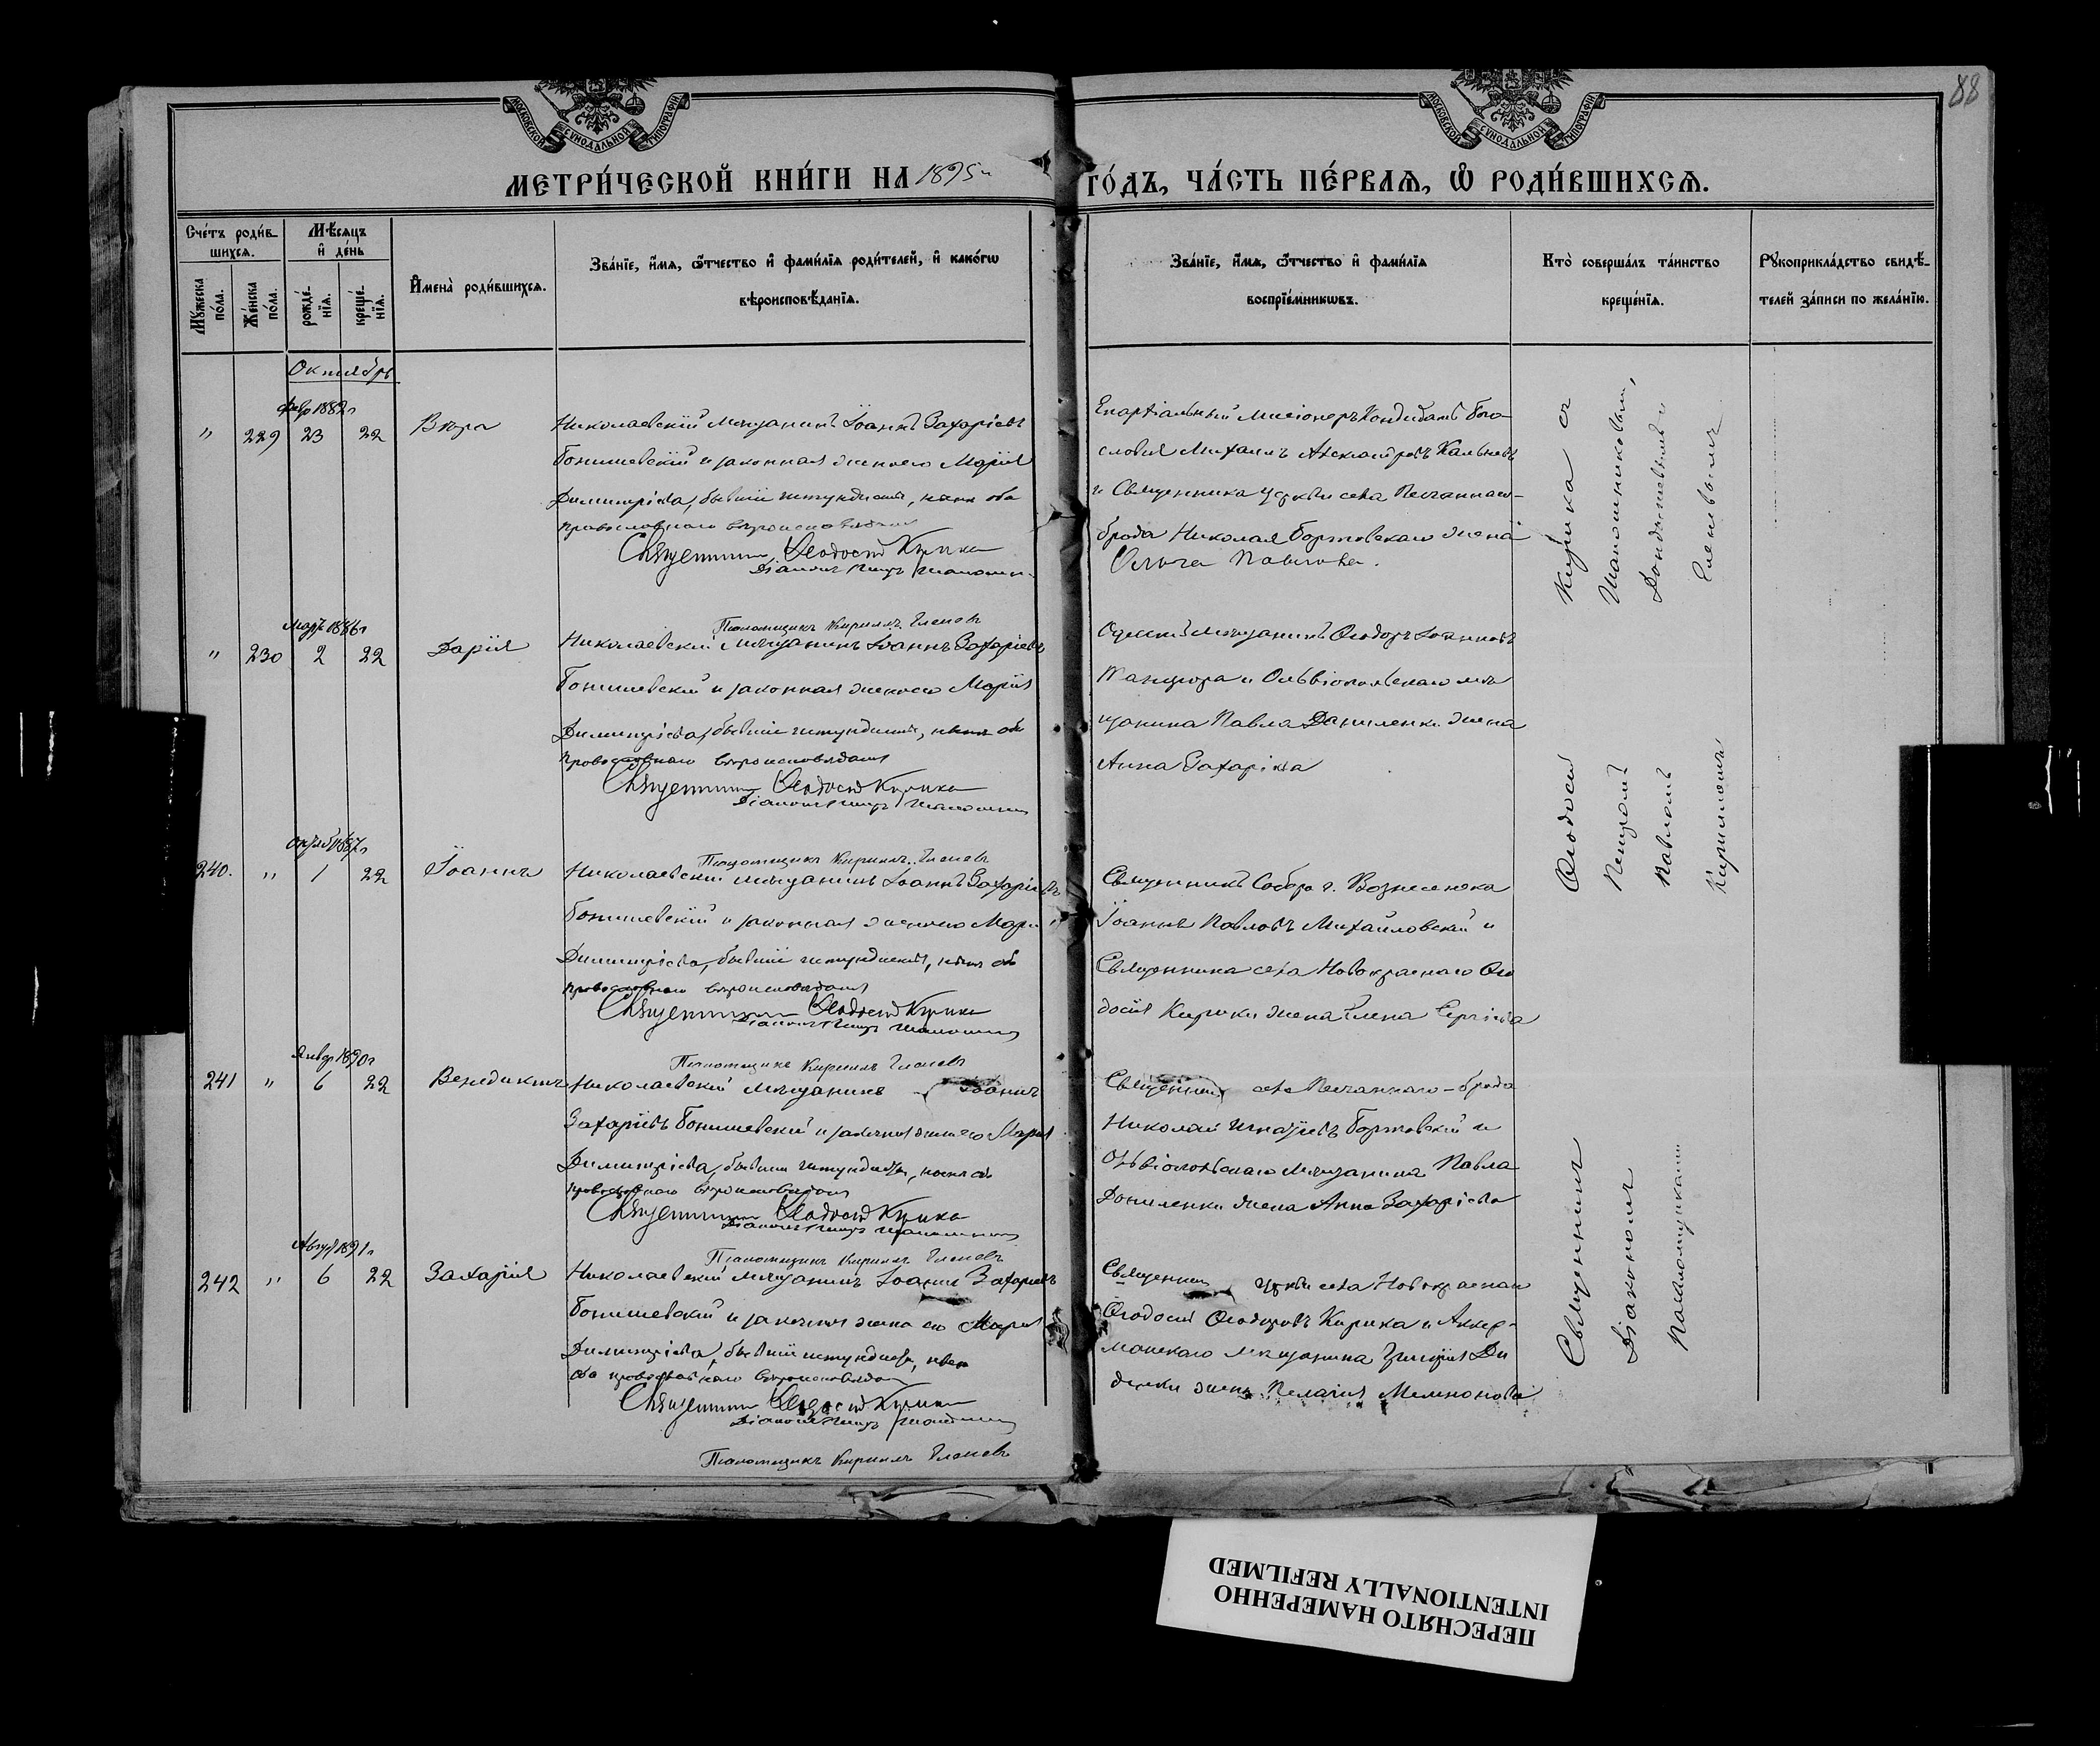 88
МОСКОВСКОЙ СѴНОДАЛЬНОЙ ТИПОГРАФІИ
МОСКОВСКОЙ СѴНОДАЛЬНОЙ ТИПОГРАФІИ
МЕТРИ́ЧЕСКОЙ КНИ́ГИ НА 1895 г
ГО́ДЪ, ЧА́СТЬ ПЕ́РВАѦ, Ѡ҆ РОДИ́ВШИХСѦ.
Сче́тъ роди́в-
шихсѧ.
Мꙋ́жеска по́ла.
Же́нска по́ла.
Мѣ́сѧцъ
и҆ де́нь
рожде́-
нїѧ.
креще́-
нїѧ.
И҆мена̀ роди́вшихсѧ.
Зва́нїе, и҆́мѧ, ѻ҆́тчество и҆ фами́лїѧ роди́телей, и҆ како́гѡ
вѣроисповѣ́данїѧ.
Зва́нїе, и҆́мѧ, ѻ҆́тчество и҆ фами́лїѧ
воспрїе́мникѡвъ.
Кто̀ соверша́лъ та́инство
креще́нїѧ.
Рꙋкоприкла́дство свидѣ́-
телей за́писи по жела́нїю.
Октябрь
Февр 1882 г
" 229 23 22 Вѣра
Николаевскій мѣщанинъ Іоаннъ Захаріевъ
Бонишевскій и законная жена его Марія
Димитріева, бывшіе штундисты, нынѣ оба
православнаго вѣроисповѣданія
Священникъ Ѳеодосій Кирика
Діаконъ Петръ
Псаломщикъ Кириллъ Еленевъ
Епархіальный Мисіонеръ Кандидатъ бого-
словія Михаилъ Александровъ Кальневъ
и Священника церкви села Песчаннаго-
брода Николая Бортовскаго жена
Ольга Павлова.
Март 1886 г
" 230 2 22 Дарія
Николаевскій мѣщанинъ Іоаннъ Захаріевъ
Бонишевскій и законная жена его Марія
Димитріева, бывшіе штундисты, нынѣ оба
православнаго вѣроисповѣданія
Священникъ Ѳеодосій Кирика
Діаконъ Петръ
Псаломщикъ Кириллъ Еленевъ
Одесскій мѣщанинъ Ѳеодоръ Іоанновъ
и Ольвіопольскаго мѣ
щанина Павла Даниленки жена
Анна Захаріева
Октяб 1887 г
240. " 1 22 Іоаннъ
Николаевскій мѣщанинъ Іоаннъ Захаріевъ
Бонишевскій и законная жена его Марія
Димитріева, бывшіе штундисты, нынѣ оба
православнаго вѣроисповѣданія
Священникъ Ѳеодосій Кирика
Діаконъ Петръ
Псаломщикъ Кириллъ Еленевъ
Священникъ Собора г. Вознесенска
Іоаннъ Павловъ Михайловскій и
Священника села Новокраснаго Ѳео
досія Кирики жена Елена Сергіева
Январ 1890 г
241 " 6 22 Венедиктъ
Николаевскій мѣщанинъ Іоаннъ
Захаріевъ Бонишевскій и законная жена его Марія
Димитріева, бывшіе штундисты, нынѣ оба
православнаго вѣроисповѣданія
Священникъ Ѳеодосій Кирика
Діаконъ Петръ
Псаломщикъ Кириллъ Еленевъ
Священникъ села Песчаннаго-брода
Николай Игнатіевъ Бортовскій и
Ольвіопольскаго мѣщанина Павла
Даниленки жена Анна Захаріева
Август 1891 г
242 " 6 22 Захарія
Николаевскій мѣщанинъ Іоаннъ Захаріевъ
Бонишевскій и законная жена его Марія
Димитріева, бывшіе штундисты, нынѣ
оба православнаго вѣроисповѣданія
Священникъ Ѳеодосій Кирика
Діаконъ Петръ
Псаломщикъ Кириллъ Еленевъ
Священникъ церкви села Новокраснаго
Ѳеодосій Ѳеодоровъ Кирика и Аккер-
манскаго мѣщанина Григорія Ди
денки жена Пелагія
Священникъ Ѳеодосій Кирика съ
Діакономъ Петромъ
Псаломщиками Павломъ
Кирилломъ Еленевымъ
ПЕРЕСНЯТО НАМЕРЕННО
INTENTIONALLY REFILMED